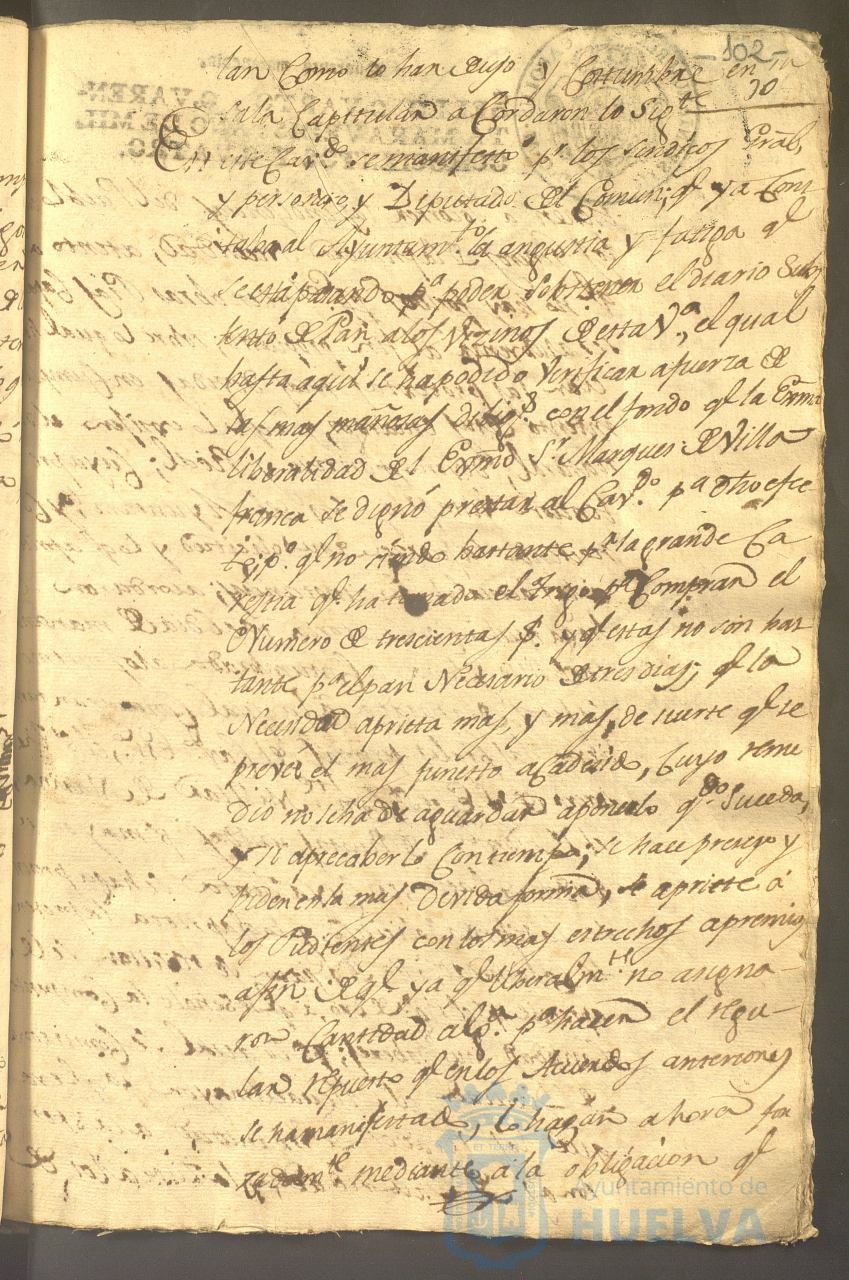 -102-
lar Como lo han de uso y Costumbre en su
30
Sala Capitular acordaron lo Sigte
En este Cavdo se manifesto pr los Sindicos Gral,
y personero, y Diputado del Comun; qe ya Cons
taba al Ayuntamto la angustia y fatiga qe
se está pasando pa poder sobstener el diario Sus
tento de Pan, a los vezinos de esta Va, el qual
hasta aqui se ha podido verificar a fuerza de
las mas mañosas diligs con el fondo qe la
liberalidad del Exmo Sr Marques de Villa
franca se dignó prestar al Cavdo pa dho efec
to, qe no siendo bastante pr la grande Ca
restia qe ha tomado el trigo pa Comprar el
Numero de trescientas f. y qe estas no son bas
tante pa el pan Necesario de tres dias; qe la
Necesidad aprieta mas, y mas, de suerte qe se
prevee el mas funesto acadecido, Cuyo reme
dio no se ha de aguardar aponerlo qdo Suceda,
y si aprecaberlo Con tiempo; se hace preciso y
piden en la mas Devida forma, se apriete á
los Pudientes con los mas estrechos apremios
afin de qe ya qe liberalmte no asigna-
ron Cantidad alga pa hacer el regu-
lar repuesto qe en los Acuerdos anteriores
se ha manifestado, lo hagan ahora for
zadamte mediante a la obligacion qe
Ayuntamiento de
HUELVA